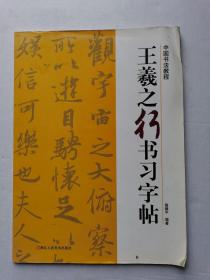 中国书法教程
王羲之行书习字帖
编著
觀宇宙之大俯察
所以遊目騁懷足
娛信可樂也夫人